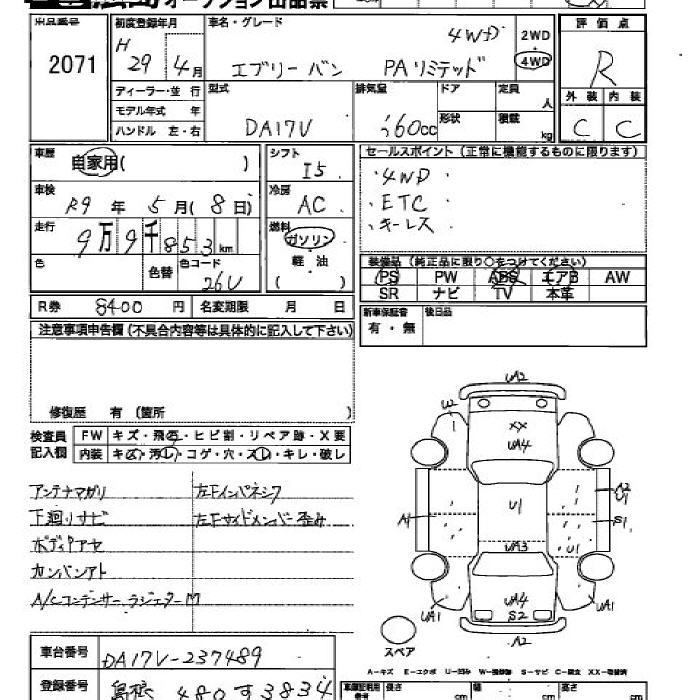 オークション出品票
出品番号
2071
初度登録年月
H
29 4月
車名・グレード
エブリー バン PAリミテッド
4WD
2WD
4WD
評価点
R
外装 内装
C C
ディーラー・並行
モデル年式 年
ハンドル 左・右
型式
DA17V
排気量
660cc
ドア
形状
定員
人
積載
kg
車歴
自家用( )
シフト
I5
車検
R9 年 5月(8日)
冷房
AC
走行
9万9千853km
燃料
ガソリン
軽・油
( )
色
色替
色コード
26U
セールスポイント(正常に機能するものに限ります)
・4WD
・ETC
・キーレス
装備品(純正品に限り○をつけてください)
PS PW ABS エアB AW
SR ナビ TV 本革
R券 8400 円 名変期限 月 日
新車保証書
有・無
後日品
注意事項申告欄(不具合内容等は具体的に記入して下さい)
修復歴 有(箇所 )
検査員
記入欄
FW キズ・飛石・ヒビ割・リペア跡・X要
内装 キズ・汚レ・コゲ・穴・スレ・キレ・破レ
アンテナマガリ 左Fインパネシワ
下廻りサビ 左Fサイドメンバー歪み
ボディアセ
カンバンアト
A/Cコンデンサーラジエターm
UA2
W2
XX
UA4
A1
U1
A2
U1
S1
UA3
U1
UA4
S2
UA1
UA1
A2
スペア
A-キズ E-エクボ U-凹み W-補修跡 S-サビ C-腐食 XX-交換済
車台番号 DA17V-237489
登録番号 島根 480す3834
車庫証明用
参考
長さ cm 幅 cm 高さ cm